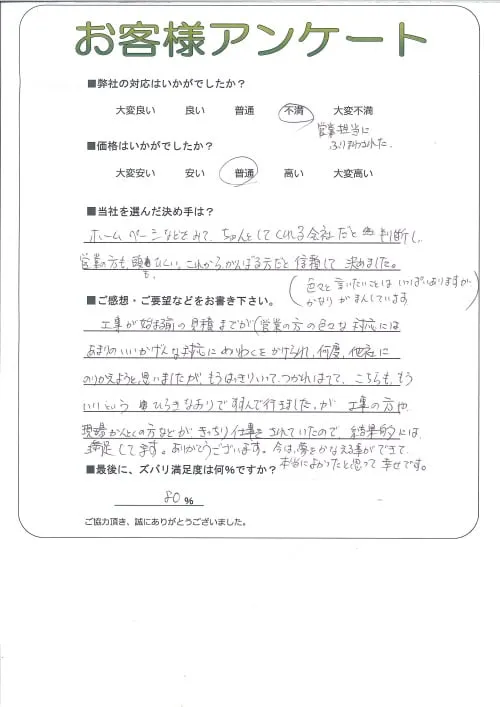 お客様アンケート
■弊社の対応はいかがでしたか？
大変良い 良い 普通 不満 大変不満
営業担当に
ふりまわされた.
■価格はいかがでしたか？
大変安い 安い 普通 高い 大変高い
■当社を選んだ決め手は？
ホームページなどをみて、ちゃんとしてくれる会社だと 判断し、
営業の方も、頭もひくい、これからがんばる方だと信頼して 決めました。
(色々と言いたいことはいっぱいありますが、
かなりがまんしています)
■ご感想・ご要望などをお書き下さい。
工事が始まる前の見積までが(営業の方の色々な対応には
あまりのいいかげんな対応にめいわくをかけられ、何度、他社に
のりかえようと思いましたが、もうはっきりいって、つかれはてて、こちらも、もう
いいという ひらきなおりで すすんで行きました。が 工事の方や
現場かんとくの方などが、きっちり仕事をされていたので、結果的には、
満足してます。ありがとうございます。今は、夢をかなえる事ができて、
本当によかったと思って幸せです。
■最後に、ズバリ満足度は何%ですか？
80 %
ご協力頂き、誠にありがとうございました。